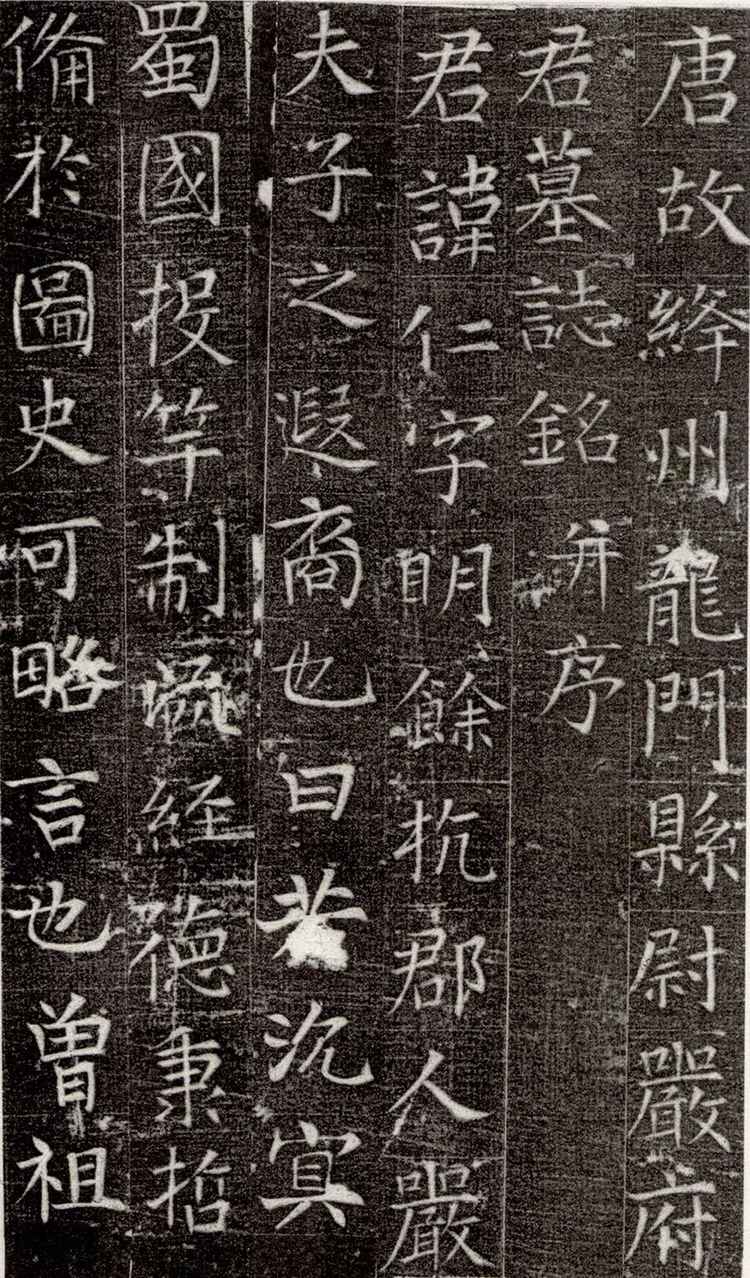 唐故絳州龍門縣尉嚴府
君墓誌銘并序
君諱仁字明餘杭郡人嚴
夫子之遐裔也曰若沉冥
蜀國投竿制瓬經德秉哲
備於圖史可略言也曾祖